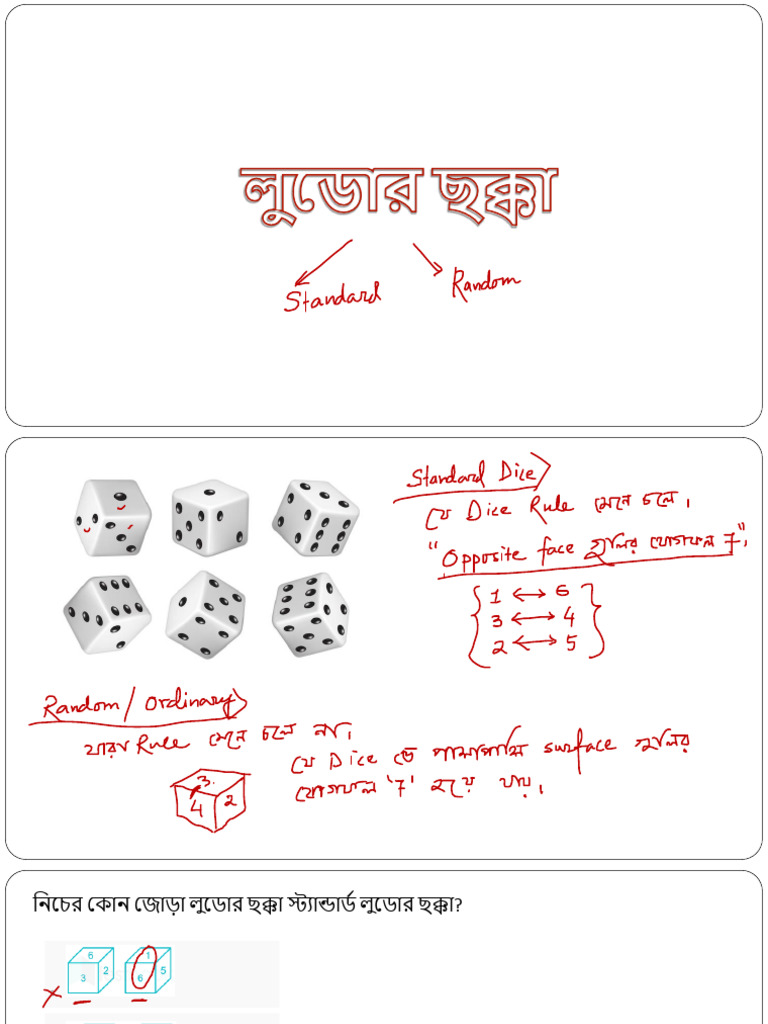 লুডোর ছক্কা
Standard
Random
Standard Dice
যে Dice Rule মেনে চলে।
"Opposite face গুলির যোগফল 7",
1 ↔ 6
3 ↔ 4
2 ↔ 5
Random / Ordinary
যারা Rule মেনে চলে না।
যে Dice তে পাশাপাশি surface গুলির
যোগফল '7' হয়ে যায়।
3.
4 2
নিচের কোন জোড়া লুডোর ছক্কা স্ট্যান্ডার্ড লুডোর ছক্কা?
6 1
3 2 6 5
×